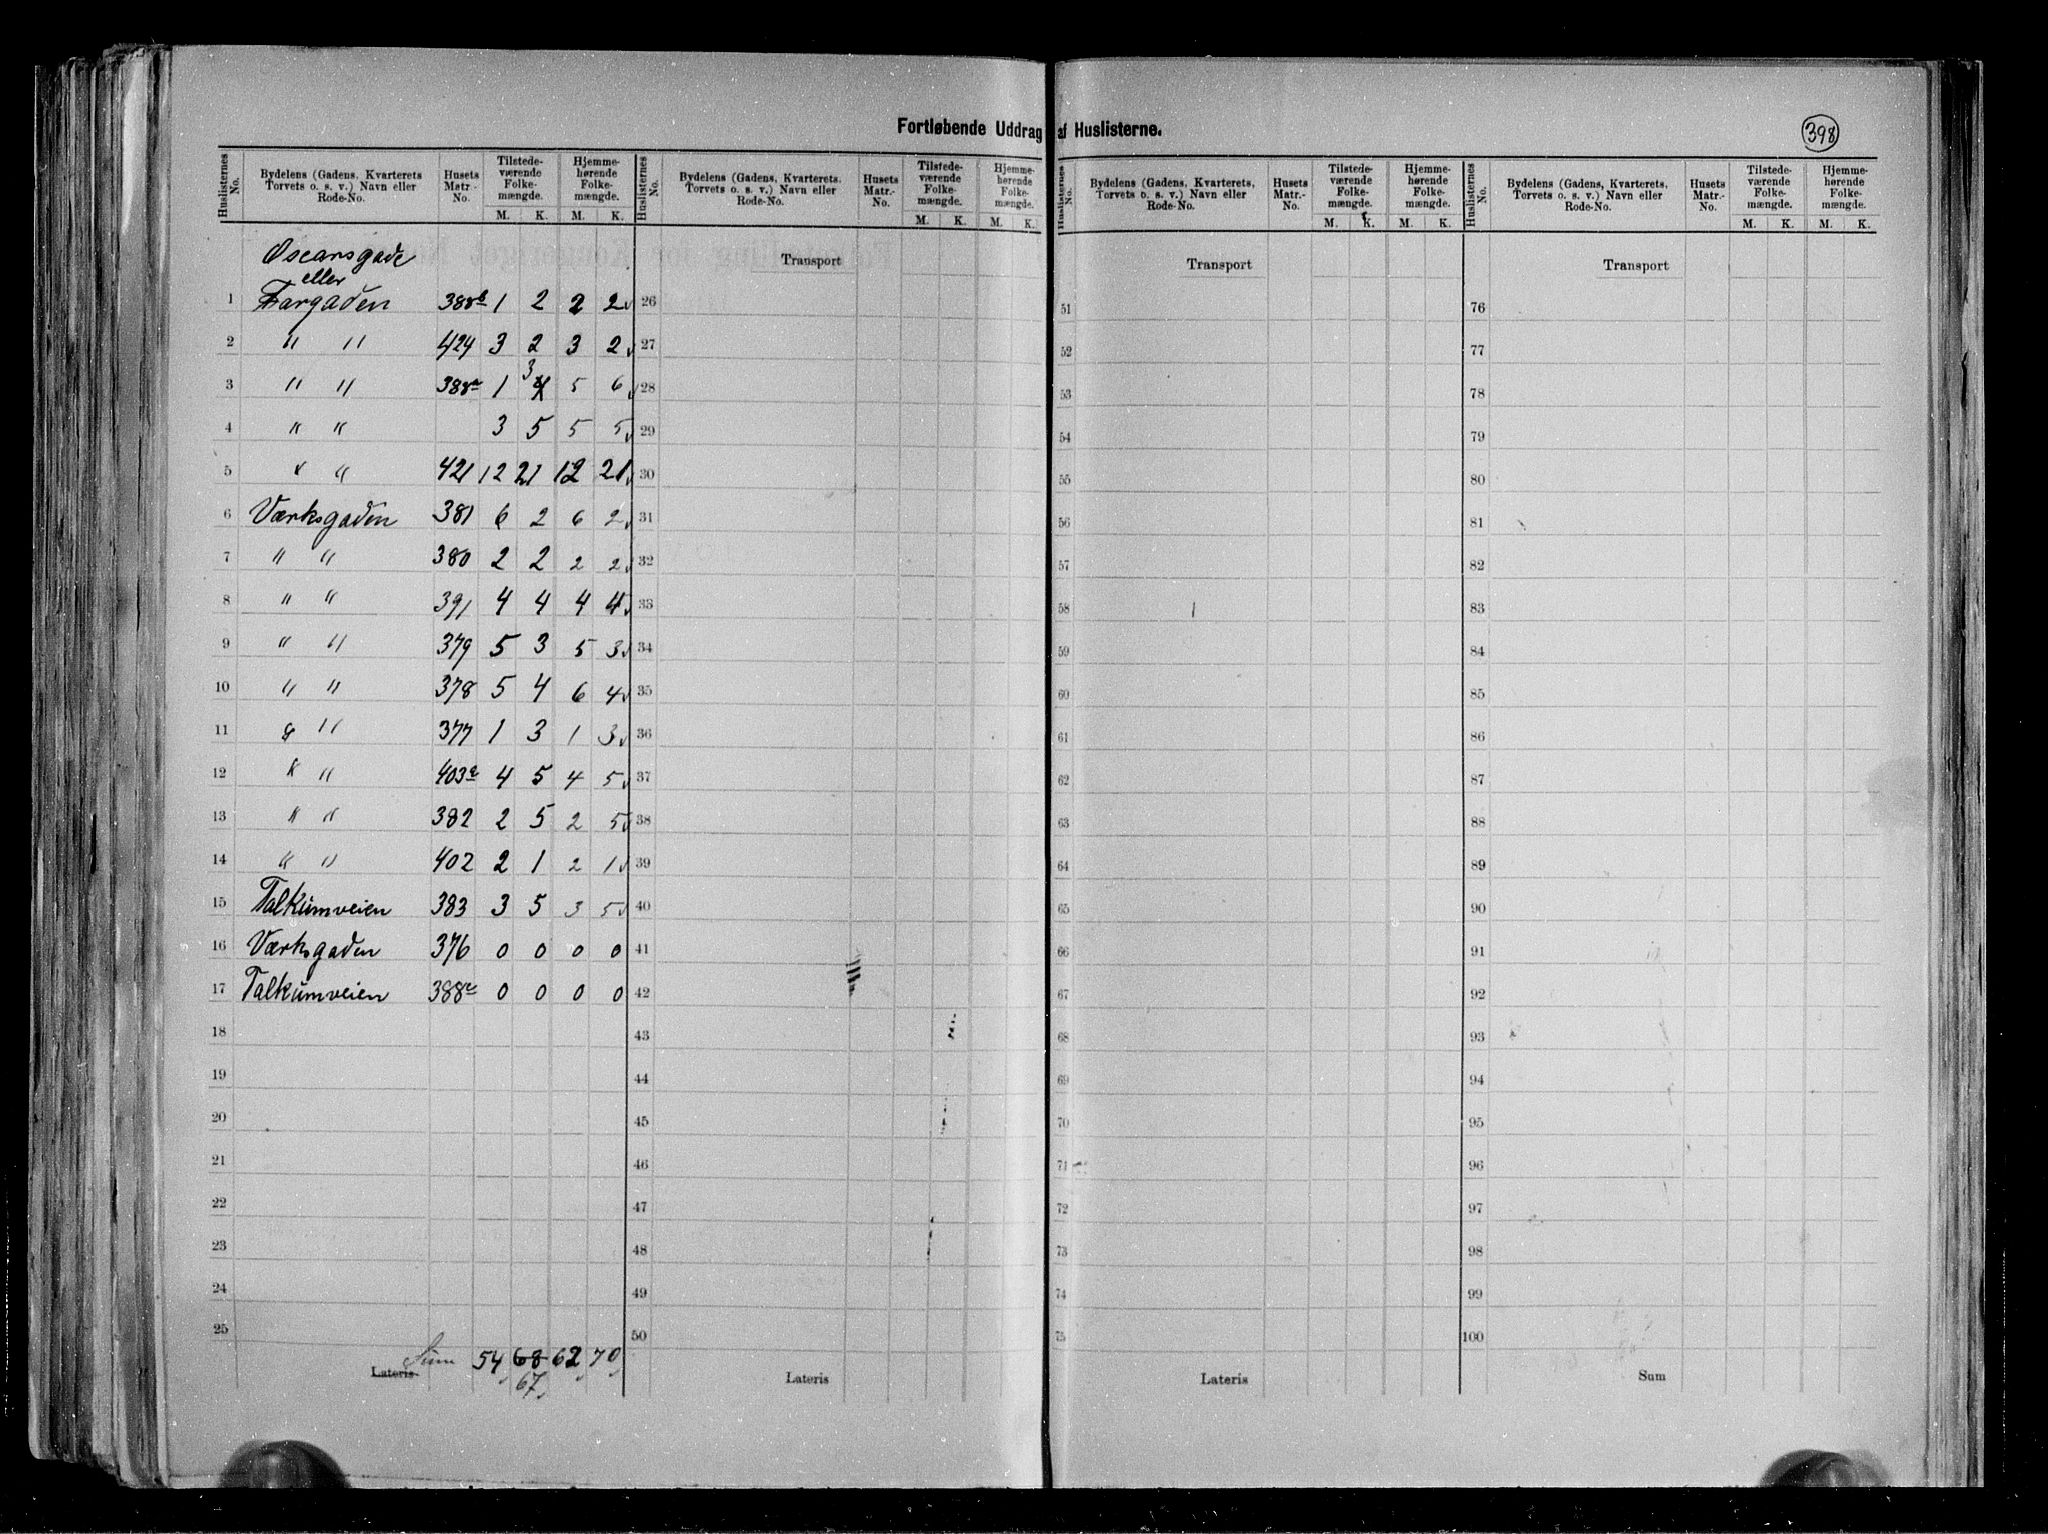 Fortløbende Uddrag af Huslisterne.
398
Huslisternes No. Bydelens (Gadens, Kvarterets, Torvets o. s. v.) Navn eller Rode-No. Husets Matr.-No. Tilstedeværende Folkemængde. M. K. Hjemmehørende Folkemængde. M. K.
Oscarsgade
eller
1 Fargaden 388b 1 2 2 2
2 " " 424 3 2 3 2
3 " " 388a 1 3 5 6
4 " " 3 5 5 5
5 " " 421 12 21 12 21
6 Værksgaden 381 6 2 6 2
7 " " 380 2 2 2 2
8 " " 391 4 4 4 4
9 " " 379 5 3 5 3
10 " " 378 5 4 6 4
11 " " 377 1 3 1 3
12 " " 403a 4 5 4 5
13 " " 382 2 5 2 5
14 " " 402 2 1 2 1
15 Talkumveien 383 3 5 3 5
16 Værksgaden 376 0 0 0 0
17 Talkumveien 388c 0 0 0 0
18
19
20
21
22
23
24
25
Lateris Sum 54 68 62 70
67
Huslisternes No. Bydelens (Gadens, Kvarterets, Torvets o. s. v.) Navn eller Rode-No. Husets Matr.-No. Tilstedeværende Folkemængde. M. K. Hjemmehørende Folkemængde. M. K.
Transport
26
27
28
29
30
31
32
33
34
35
36
37
38
39
40
41
42
43
44
45
46
47
48
49
50
Lateris
Huslisternes No. Bydelens (Gadens, Kvarterets, Torvets o. s. v.) Navn eller Rode-No. Husets Matr.-No. Tilstedeværende Folkemængde. M. K. Hjemmehørende Folkemængde. M. K.
Transport
51
52
53
54
55
56
57
58
59
60
61
62
63
64
65
66
67
68
69
70
71
72
73
74
75
Lateris
Huslisternes No. Bydelens (Gadens, Kvarterets, Torvets o. s. v.) Navn eller Rode-No. Husets Matr.-No. Tilstedeværende Folkemængde. M. K. Hjemmehørende Folkemængde. M. K.
Transport
76
77
78
79
80
81
82
83
84
85
86
87
88
89
90
91
92
93
94
95
96
97
98
99
100
Sum